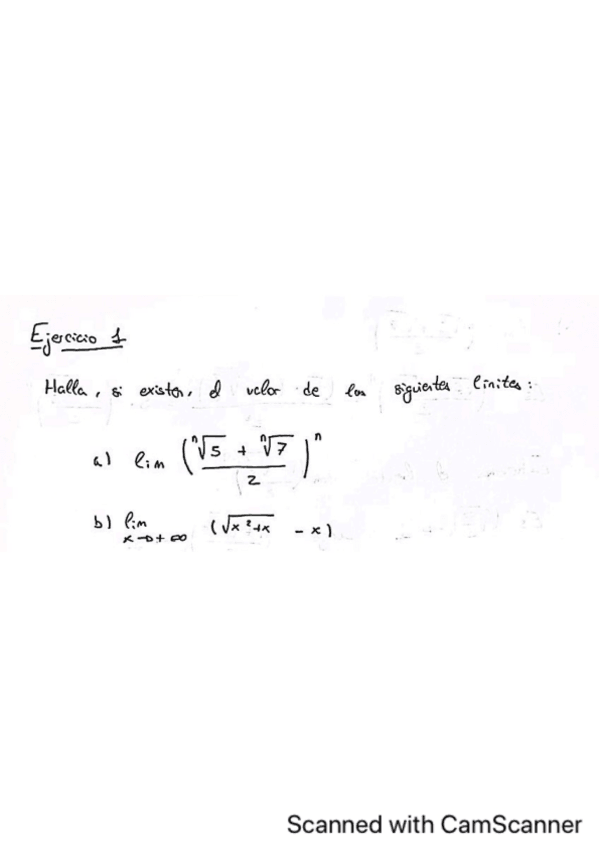 Ejercicio 1
Halla, si existen, el valor de los siguientes límites:
a) lim ((ⁿ√5 + ⁿ√7) / 2)ⁿ
b) lim x→+∞ (√(x²+x) - x)
Scanned with CamScanner